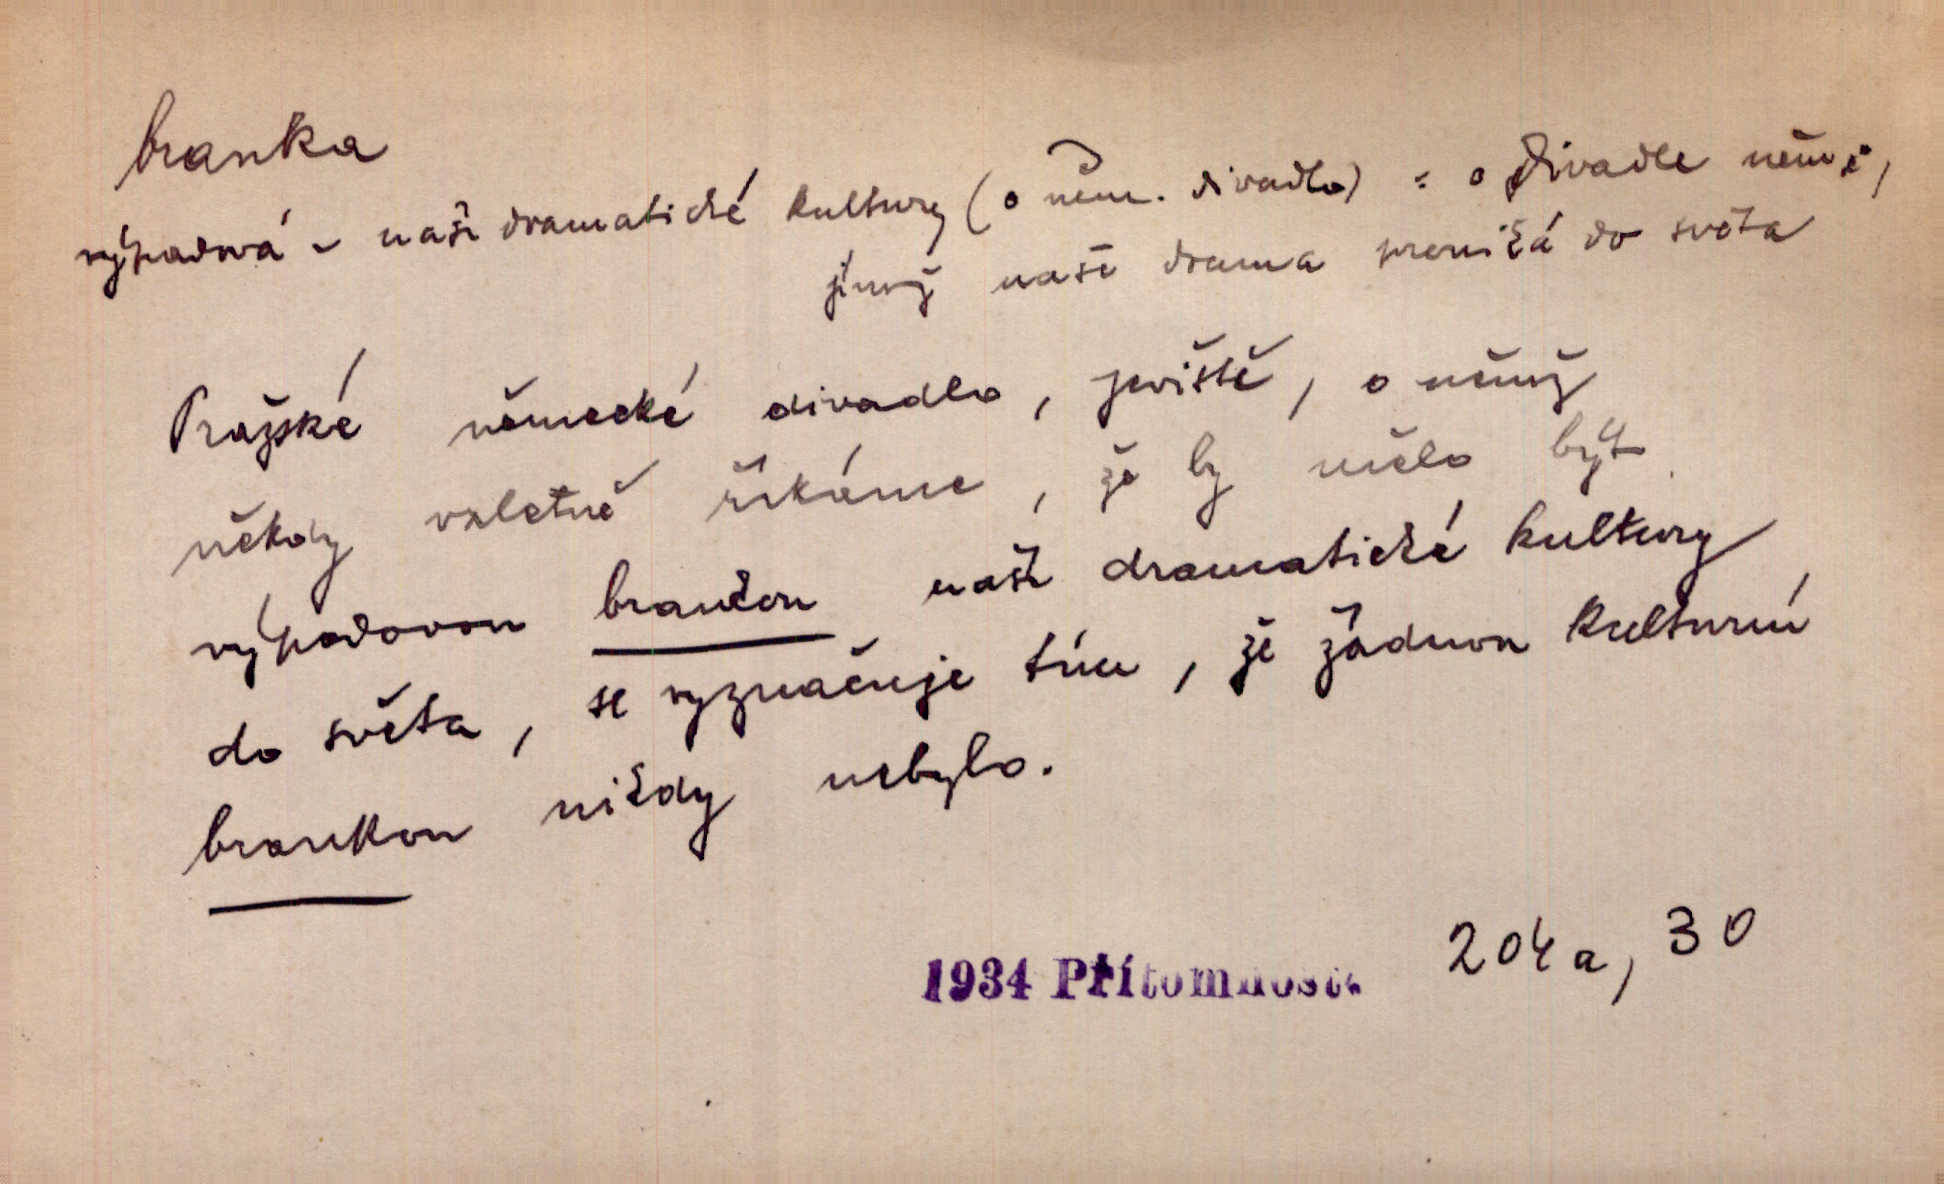 branka
výpadová ~ naší dramatické kultury (o něm. divadle) = o divadle něm.,
jímž naše drama proniká do světa
Pražské německé divadlo, jeviště, o němž
někdy vzletně říkáme, že by mělo být
výpadovou brankou naší dramatické kultury
do světa, se vyznačuje tím, že žádnou kulturní
brankou nikdy nebylo.
1934 Přítomnost. 204a, 30